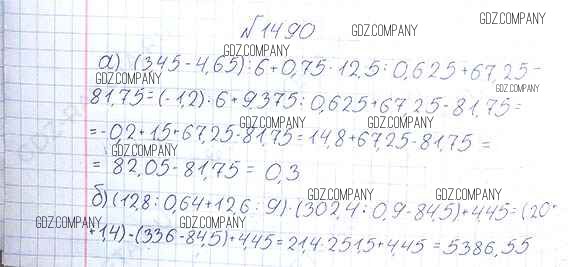 №1490
а) (3,45 - 4,65) : 6 + 0,75 · 12,5 : 0,625 + 67,25 -
81,75 = (-1,2) · 6 + 9,375 : 0,625 + 67,25 - 81,75 =
= -0,2 + 15 + 67,25 - 81,75 = 14,8 + 67,25 - 81,75 =
= 82,05 - 81,75 = 0,3
б) (12,8 : 0,64 + 12,6 : 9) · (302,4 : 0,9 - 84,5) + 4,45 = (20+
+1,4) · (336 - 84,5) + 4,45 = 21,4 · 251,5 + 4,45 = 5386,55
GDZ.COMPANY
GDZ.COMPANY
GDZ.COMPANY
GDZ.COMPANY
GDZ.COMPANY
GDZ.COMPANY
GDZ.COMPANY
GDZ.COMPANY
GDZ.COMPANY
GDZ.COMPANY
GDZ.COMPANY
GDZ.COMPANY
GDZ.COMPANY